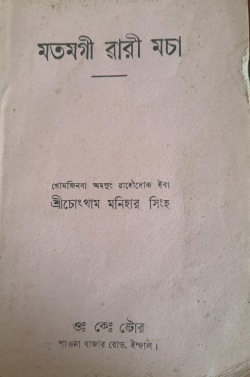 মতমগী ৱারী মচা
খোমজিনবা অমসুং রাহৌদোক ইবা
শ্রীচোংথাম মনিহার সিংহ
ওঃ কেঃ ষ্টোর
পাওনা বাজার রোড, ইম্ফাল।